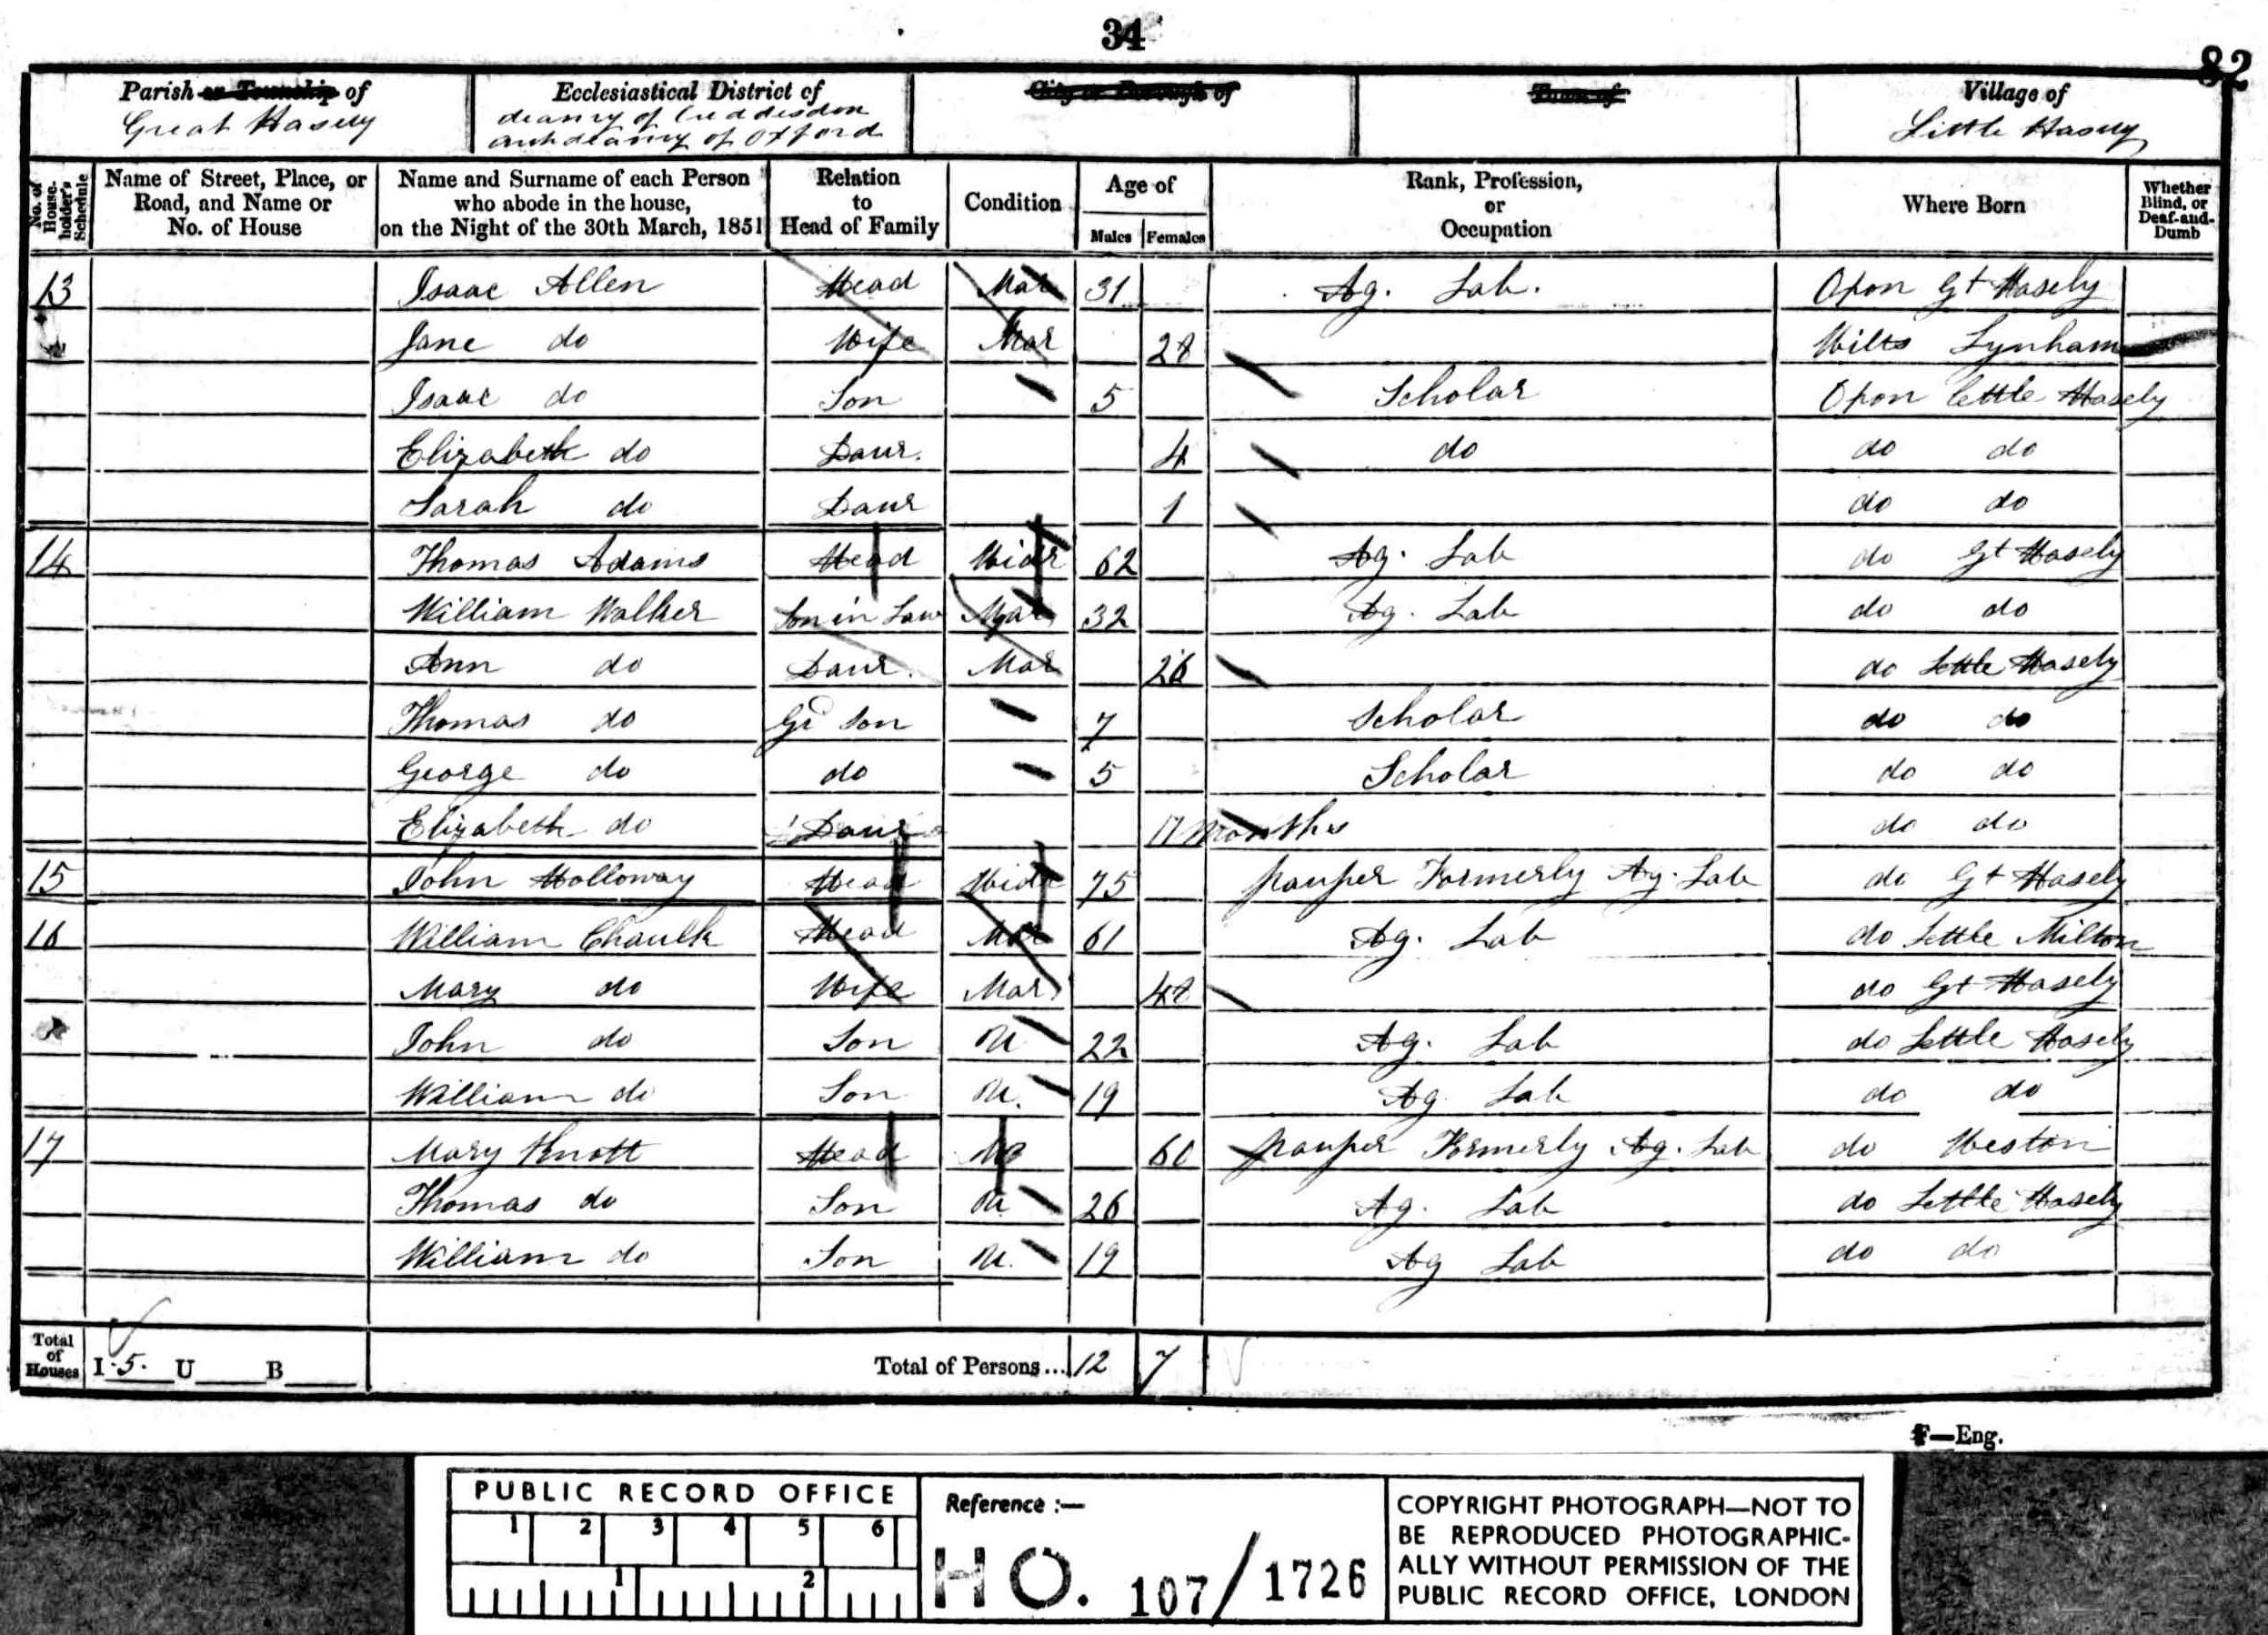 34
82
Parish or Township of
Great Hasely
Ecclesiastical District of
deanry of Cuddesdon
archdeanry of Oxford
City or Borough of
Town of
Village of
Little Hasely
No. of House-holder's Schedule
Name of Street, Place, or Road, and Name or No. of House
Name and Surname of each Person who abode in the house, on the Night of the 30th March, 1851
Relation to Head of Family
Condition
Age of
Males Females
Rank, Profession, or Occupation
Where Born
Whether Blind, or Deaf-and-Dumb
13 Isaac Allen Head Mar 31 Ag. Lab. Oxon Gt Hasely
Jane do Wife Mar 28 Wilts Lynham
Isaac do Son 5 Scholar Oxon Little Hasely
Elizabeth do Daur. 4 do do do
Sarah do Daur 1 do do
14 Thomas Adams Head Widr 62 Ag. Lab do Gt Hasely
William Walker Son in Law Mar 32 Ag. Lab do do
Ann do Daur. Mar 26 do Little Hasely
Thomas do Gd Son 7 Scholar do do
George do do 5 Scholar do do
Elizabeth do Daur 11 Months do do
15 John Holloway Head Widr 75 pauper Formerly Ag. Lab do Gt Hasely
16 William Chaulk Head Mar 61 Ag. Lab do Little Milton
Mary do Wife Mar 48 do Gt Hasely
John do Son U 22 Ag. Lab do Little Hasely
William do Son U. 19 Ag. Lab do do
17 Mary Knott Head 60 pauper Formerly Ag. Lab do Weston
Thomas do Son U 26 Ag. Lab do Little Hasely
William do Son U. 19 Ag Lab do do
Total of Houses I 5. U B Total of Persons... 12 7
F—Eng.
PUBLIC RECORD OFFICE
1 2 3 4 5 6
1 2
Reference :—
HO. 107/1726
COPYRIGHT PHOTOGRAPH—NOT TO
BE REPRODUCED PHOTOGRAPHIC-
ALLY WITHOUT PERMISSION OF THE
PUBLIC RECORD OFFICE, LONDON